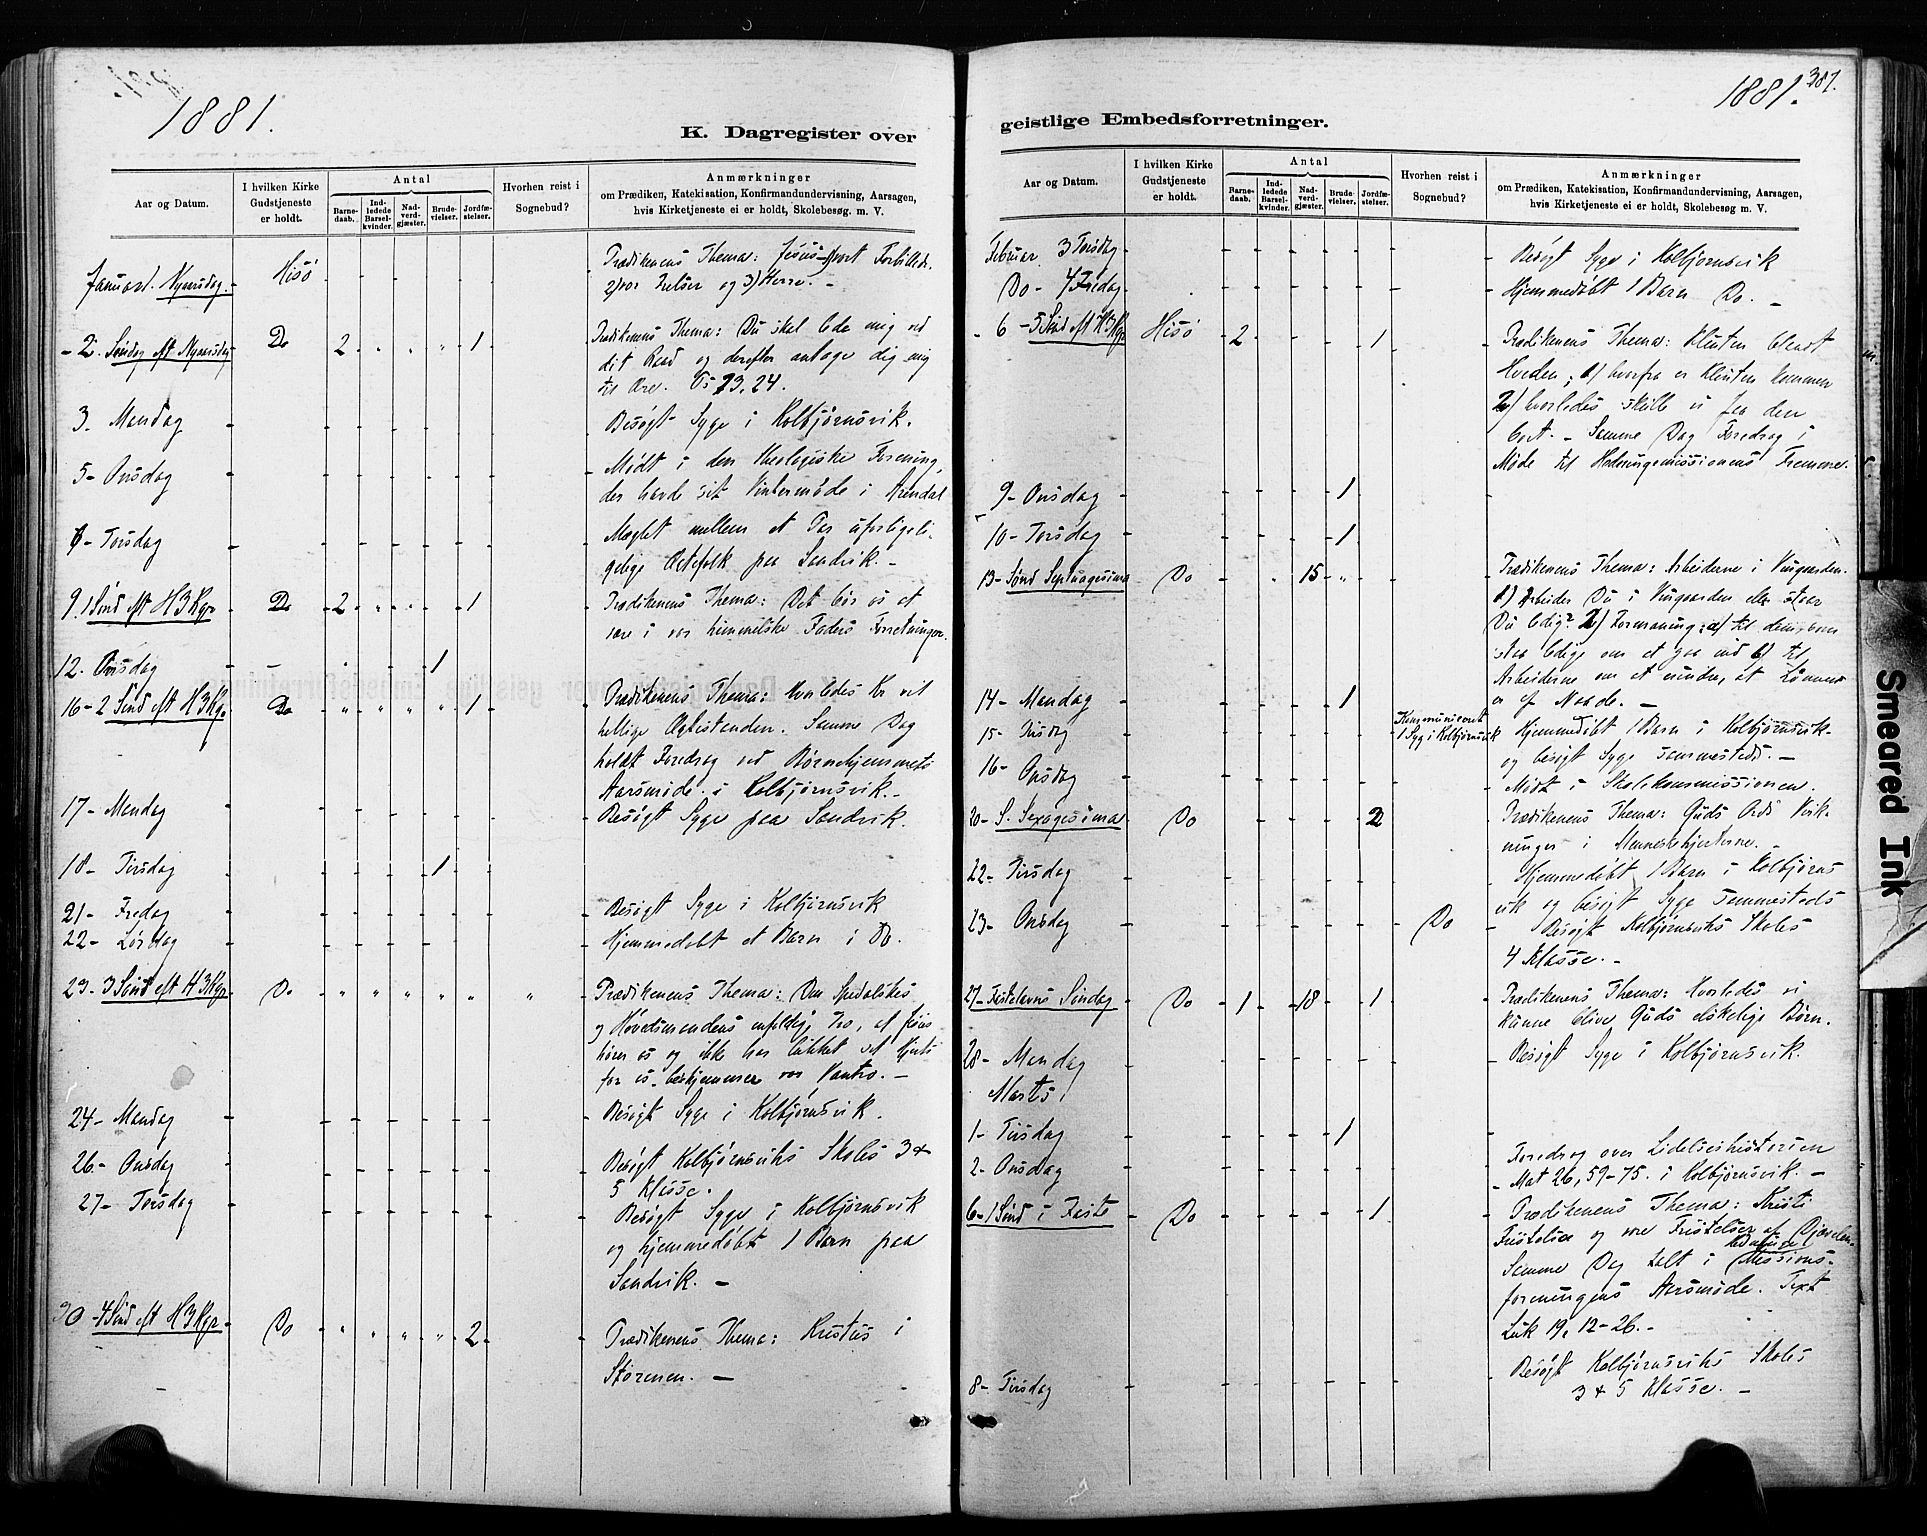 1881.
K. Dagregister over
Aar og Datum.
I hvilken Kirke Gudstjeneste er holdt.
Antal
Barne-daab.
Ind-ledede Barsel-kvinder.
Nad-verd-gjæster.
Brude-vielser.
Jordfæ-stelser.
Hvorhen reist i Sognebud?
Anmærkninger
om Prædiken, Katekisation, Konfirmandundervisning, Aarsagen,
hvis Kirketjeneste ei er holdt, Skolebesøg m. V.
Januar 1. Nyaarsdag. Hisö - - - - - Prædikenens Thema: Jesus 1) vort Forbillede
2) vor Frelser og 3) Herre. -
- 2. Søndag eft Nyaarsdag Do 2 " " " 1 Prædikenens Thema: Du skal lede mig ved
dit Raad og derefter antage dig mig
til Ære. Ps 73,24.
3. Mandag - - - - - Besøgt Syge i Kolbjørnsvik.
5- Onsdag - - - - - Mødt i den theologiske Forening,
der havde sit Vintermøde i Arendal
6- Torsdag - - - - - Mæglet mellem et Par uforlige-
gelige Ægtefolk paa Sandvik. -
9. 1 Sønd eft H3Kgr Do 2 " " - 1 Prædikenens Thema: Det bør os at
være i vor himmelske Faders Forretninger.
12. Onsdag - - - - 1
16- 2 Sønd eft H3Kgr Do " " " " 1 Prædikenens Thema: Hvorledes Kr vil
hellige Ægtestanden. Samme Dag
holdt Foredrag ved Børnehjemmets
Aarsmøde i Kolbjørnsvik. -
17- Mandag - - - - - Besøgt Syge paa Sandvik.
18- Tirsdag - - - 1 -
21- Fredag - - - - - Besøgt Syge i Kolbjørnsvik
22- Lørdag - - - - - Hjemmedøbt et Barn i Do.
23- 3 Sønd eft H3Kgr Do " " " " " " Prædikenens Thema: Den Spedalskes
og Høvedsmandens enfoldige Tro, at Jesus
hører os og ikke har lukket sit Hjerte
for os, beskjemmer vor Vantro. -
24- Mandag - - - - - Besøgt Syge i Kolbjørnsvik.
26- Onsdag - - - - - Besøgt Kolbjørnsviks Skoles 3 &
5 Klasse.
27- Torsdag - - - - - Besøgt Syge i Kolbjørnsvik
og hjemmedøbt 1 Barn paa
Sandvik. -
30- 4 Sønd eft H3Kgr. Do " " " " 2 - Prædikenens Thema: Kristus i
Stormen. -
1881. 387.
geistlige Embedsforretninger.
Aar og Datum.
I hvilken Kirke Gudstjeneste er holdt.
Antal
Barne-daab.
Ind-ledede Barsel-kvinder.
Nad-verd-gjæster.
Brude-vielser.
Jordfæ-stelser.
Hvorhen reist i Sognebud?
Anmærkninger
om Prædiken, Katekisation, Konfirmandundervisning, Aarsagen,
hvis Kirketjeneste ei er holdt, Skolebesøg m. V.
Februar 3 Torsdag - - - - - Besøgt Syge i Kolbjørnsvik
Do - 4 Fredag - - - - - Hjemmedøbt 1 Barn Do. -
- 6 - 5 Sønd eft H3Kgr Hisö 2 - - - 1 Prædikenens Thema: Klinten blandt
Hveden; 1) hvorfra er Klinten kommen
2) hvorledes skille vi fra den
bort. - Samme Dag Foredrag i
Møde til Hedningemissionens Fremme.
9- Onsdag - - - 1 -
10- Torsdag - - - 1 -
13- Sønd Septuagesima Do " 15 " - Prædikenens Thema: Arbeiderne i Vingaarden.
1) Arbeider Du i Vingaarden eller staar
Du ledig? 2) Formaning: a) til dem, som
staa ledige om at gaa ind b) til
Arbeiderne om at mindes, at Lønnen
er af Naade. -
14- Mandag - - - 1 -
15- Tirsdag Kommuniceret 1 Syg i Kolbjørnsvik Hjemmedøbt 1 Barn i Kolbjørnsvik-
og besøgt Syge sammesteds. -
16- Onsdag - - - - - Mødt i Skolekommissionen.
20- S. Sexagesima Do - - - - 2 Prædikenens Thema: Guds Ords Virk-
ninger i Menneskehjerterne. -
22- Tirsdag - - - - - Hjemmedøbt 1 Barn i Kolbjørns
vik og besøgt Syge sammesteds
23- Onsdag - - - - - Do Besøgt Kolbjørnsviks Skoles
4 Klasse. -
27- Fastelavns Søndag Do 1 - 18 - 1 Prædikenens Thema: Hvorledes vi
kunne blive Guds elskelige Børn.
28- Mandag - - - - - Besøgt Syge i Kolbjørnsvik.
Marts.
1- Tirsdag - - - 1 -
2- Onsdag - - - - - Foredrag over Lidelseshistorien
Mat 26, 59-75. i Kolbjørnsvik. -
6- 1 Sønd i Faste Do - - - - 1 Prædikenens Thema: Kristi
Fristelse og vore Fristelser af Djævelen.
Samme Dag talt i Missions-
foreningens Aarsmøde. Text
Luk 19, 12-26. -
8- Tirsdag - - - - - Besøgt Kolbjørnsviks Skoles
3 & 5 Klasse. -
Smeared Ink